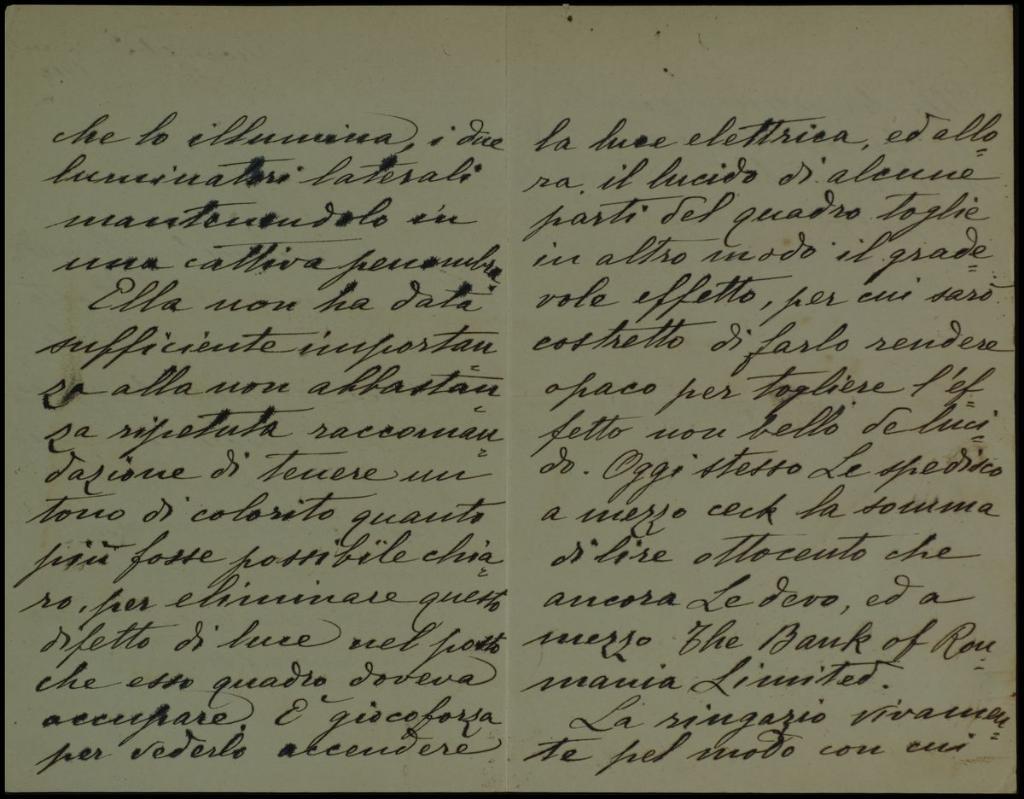 che lo illumina, i due
luminatori laterali
mantenendolo in
una cattiva penombra.
Ella non ha data
sufficiente importan
za alla non abbastan=
za ripetuta raccoman=
dazione di tenere un
tono di colorito quanto
più fosse possibile chia=
ro, per eliminare questo
difetto di luce nel posto
che esso quadro doveva
occupare. E' giocoforza
per vederlo accendere
la luce elettrica, ed allo=
ra, il lucido di alcune
parti del quadro toglie
in altro modo il grade=
vole effetto, per cui sarò
costretto di farlo rendere
opaco per togliere l'ef=
fetto non bello de luci=
do. Oggi stesso Le spedisco
a mezzo ceck la somma
di lire ottocento che
ancora Le devo, ed a
mezzo The Bank of Rou=
mania Limited.
La ringazio vivamen=
te pel modo con cui